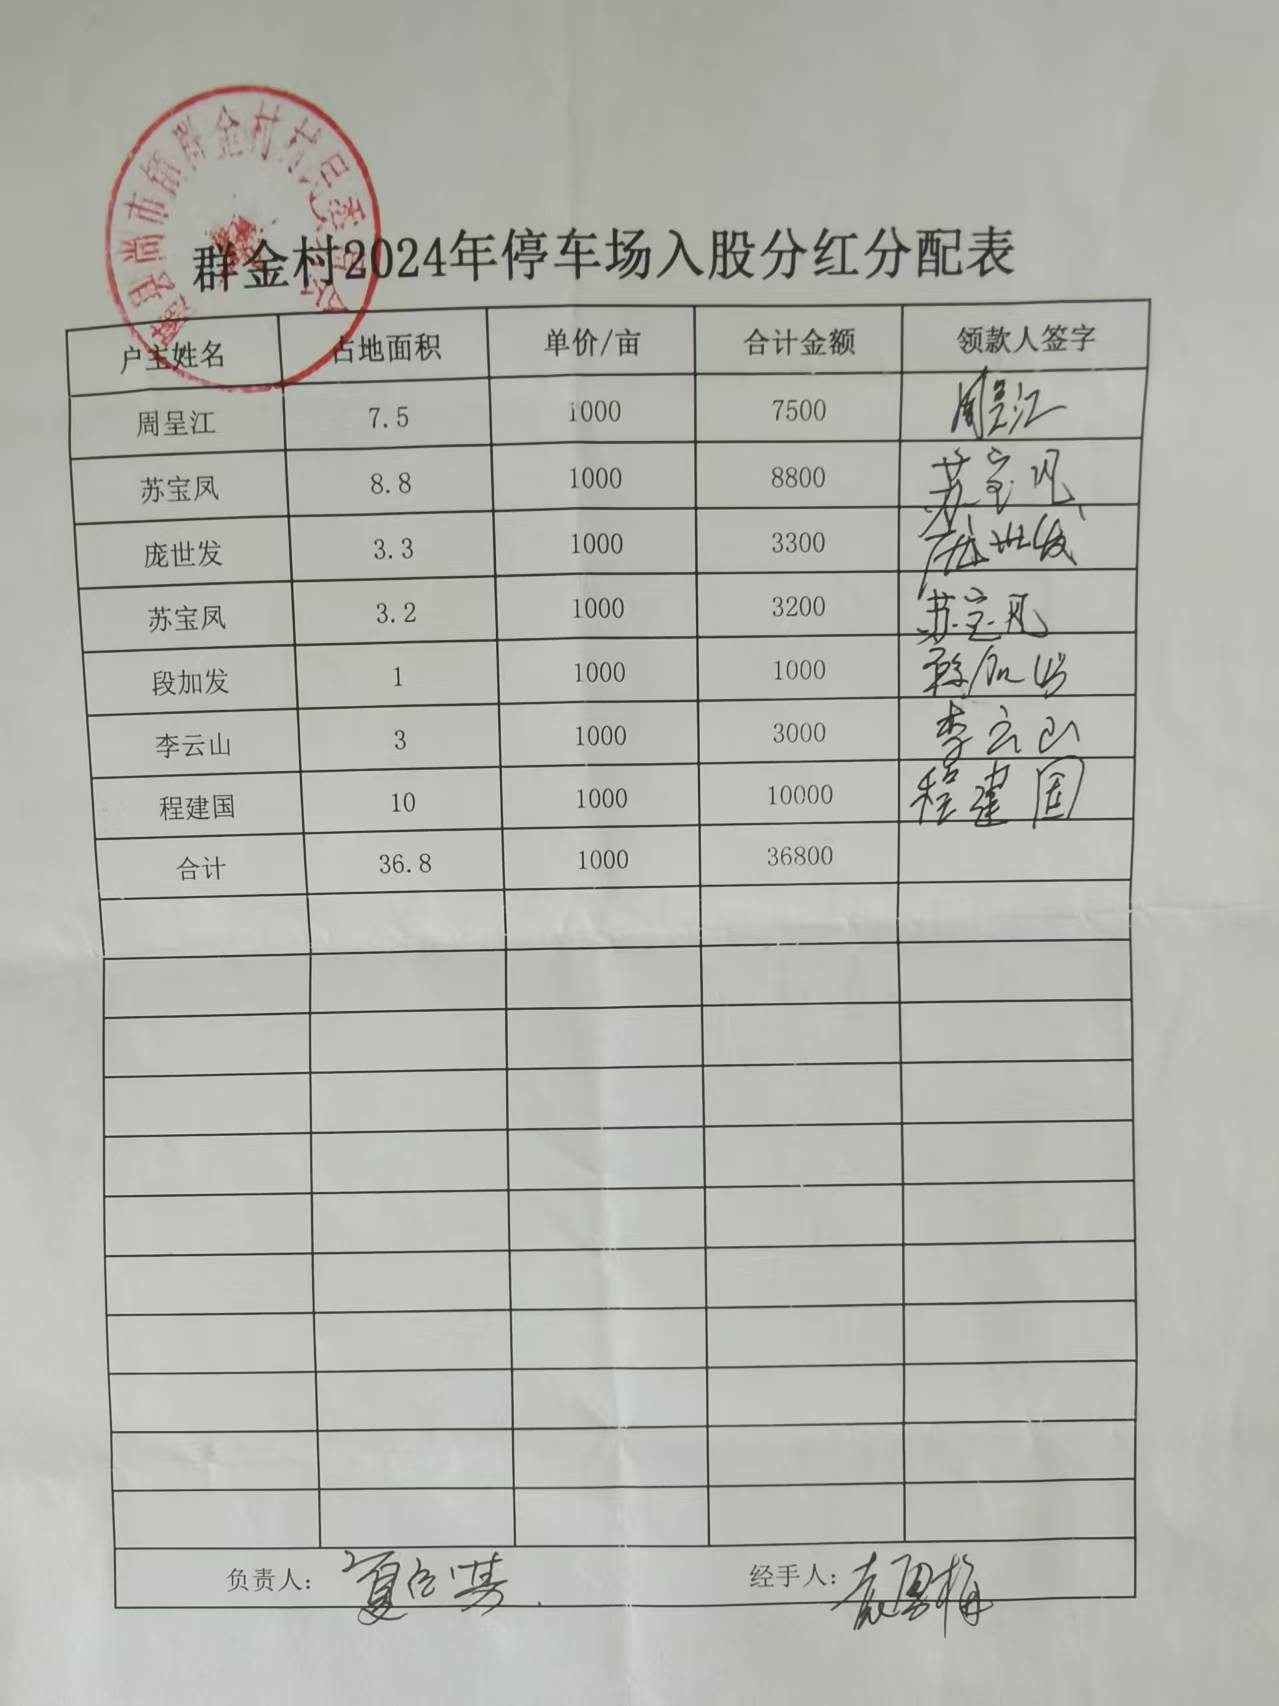 群金村2024年停车场入股分红分配表
户主姓名 占地面积 单价/亩 合计金额 领款人签字
周呈江 7.5 1000 7500 周呈江
苏宝凤 8.8 1000 8800 苏宝凤
庞世发 3.3 1000 3300 庞世发
苏宝凤 3.2 1000 3200 苏宝凤
段加发 1 1000 1000 段加发
李云山 3 1000 3000 李云山
程建国 10 1000 10000 程建国
合计 36.8 1000 36800
负责人： 经手人：
县尚市镇群金村村民委员会